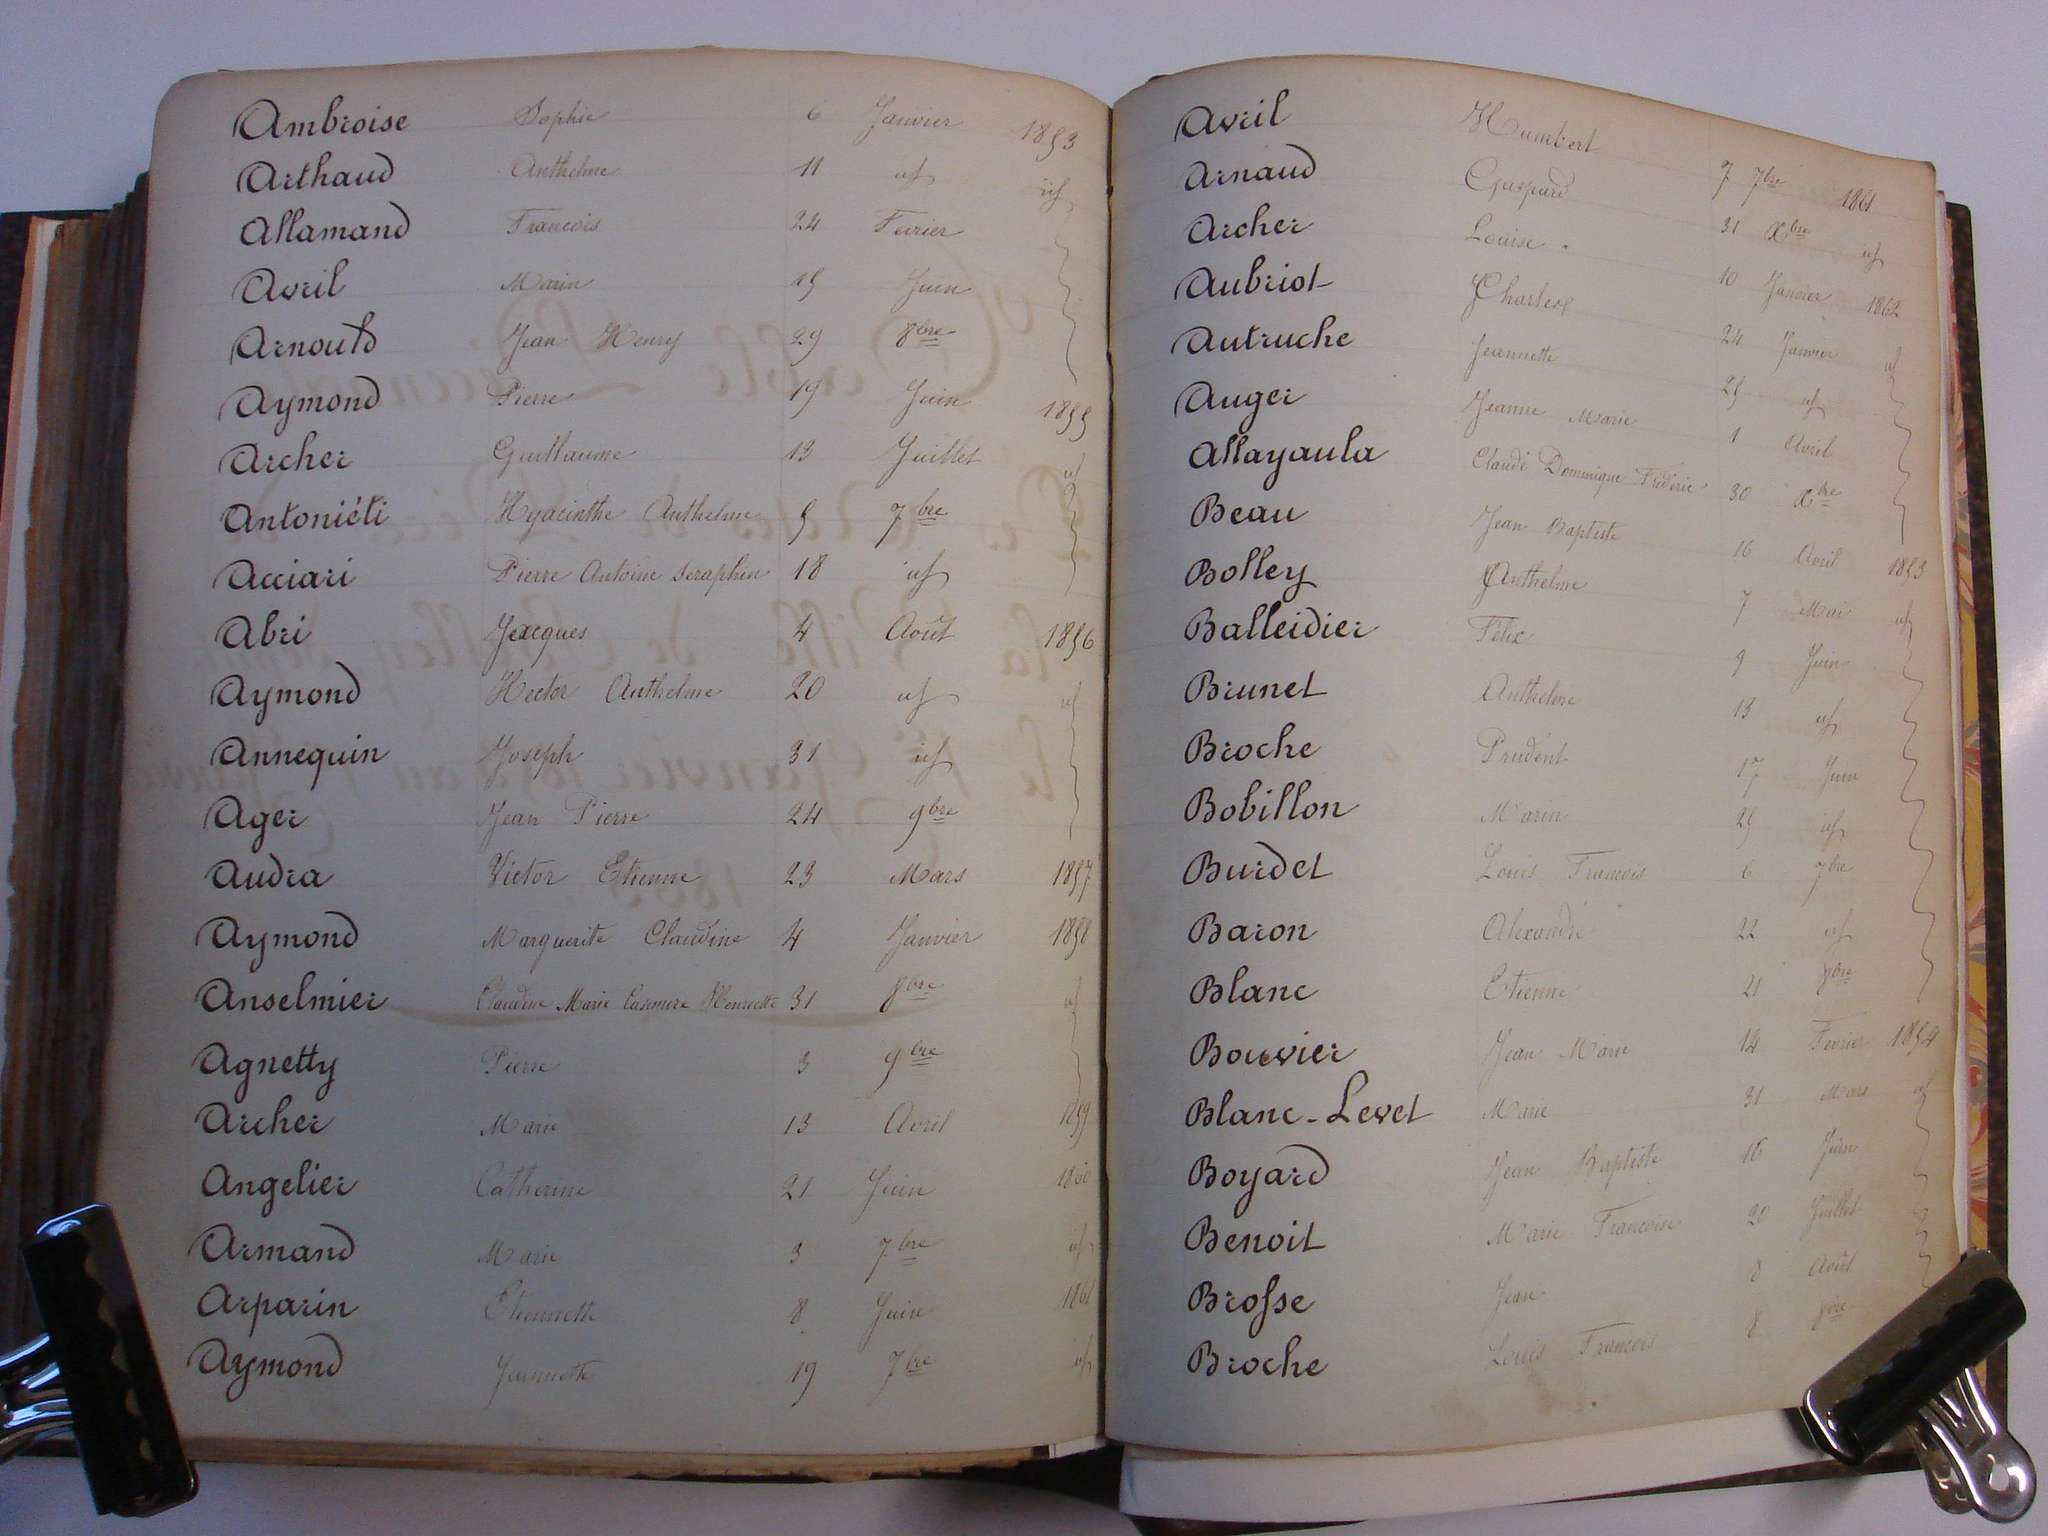 Ambroise Sophie 6 Janvier 1853
Arthaud Anthelme 11 id id
Allamand Francois 24 Fevrier
Avril Marin 15 Juin
Arnould Jean Henry 29 8bre
Aymond Pierre 19 Juin 1855
Archer Guillaume 13 Juillet id
Antoniéti Hyacinthe Anthelme 5 7bre
Acciari Pierre Antoine Seraphin 18 id
Abri Jacques 4 Août 1856
Aymond Hector Anthelme 20 id id
Annequin Joseph 31 id
Ager Jean Pierre 24 9bre
Audra Victor Etienne 23 Mars 1857
Aymond Marguerite Claudine 4 Janvier 1858
Anselmier Claudine Marie Casimire Henriette 31 8bre id
Agnetty Pierre 3 9bre
Archer Marie 13 Avril 1859
Angelier Catherine 21 Juin 1860
Armand Marie 3 7bre id
Arparin Etiennette 8 Juin 1861
Aymond Jeannette 19 7bre id
Avril Humbert 7 7bre 1861
Arnaud Gaspard 31 Xbre id
Archer Louise 10 Janvier 1862
Aubriot Charles 24 Janvier id
Autruche Jeannette 25 id
Auger Jeanne Marie 1 Avril
Allayaula Claude Dominique Frédéric 30 Xbre
Beau Jean Baptiste 16 Avril 1853
Bolley Anthelme 7 Mai id
Balleidier Félix 9 Juin
Brunet Anthelme 13 id
Broche Prudent 17 Juin
Bobillon Marin 25 id
Burdet Louis Francois 6 7bre
Baron Alexandre 22 id
Blanc Etienne 21 8bre
Bouvier Jean Marie 14 Fevrier 1854
Blanc-Levet Marie 31 Mars id
Boyard Jean Baptiste 16 Juin
Benoit Marie Francoise 20 Juillet
Brosse Jean 8 Août
Broche Louis Francois 8 8bre